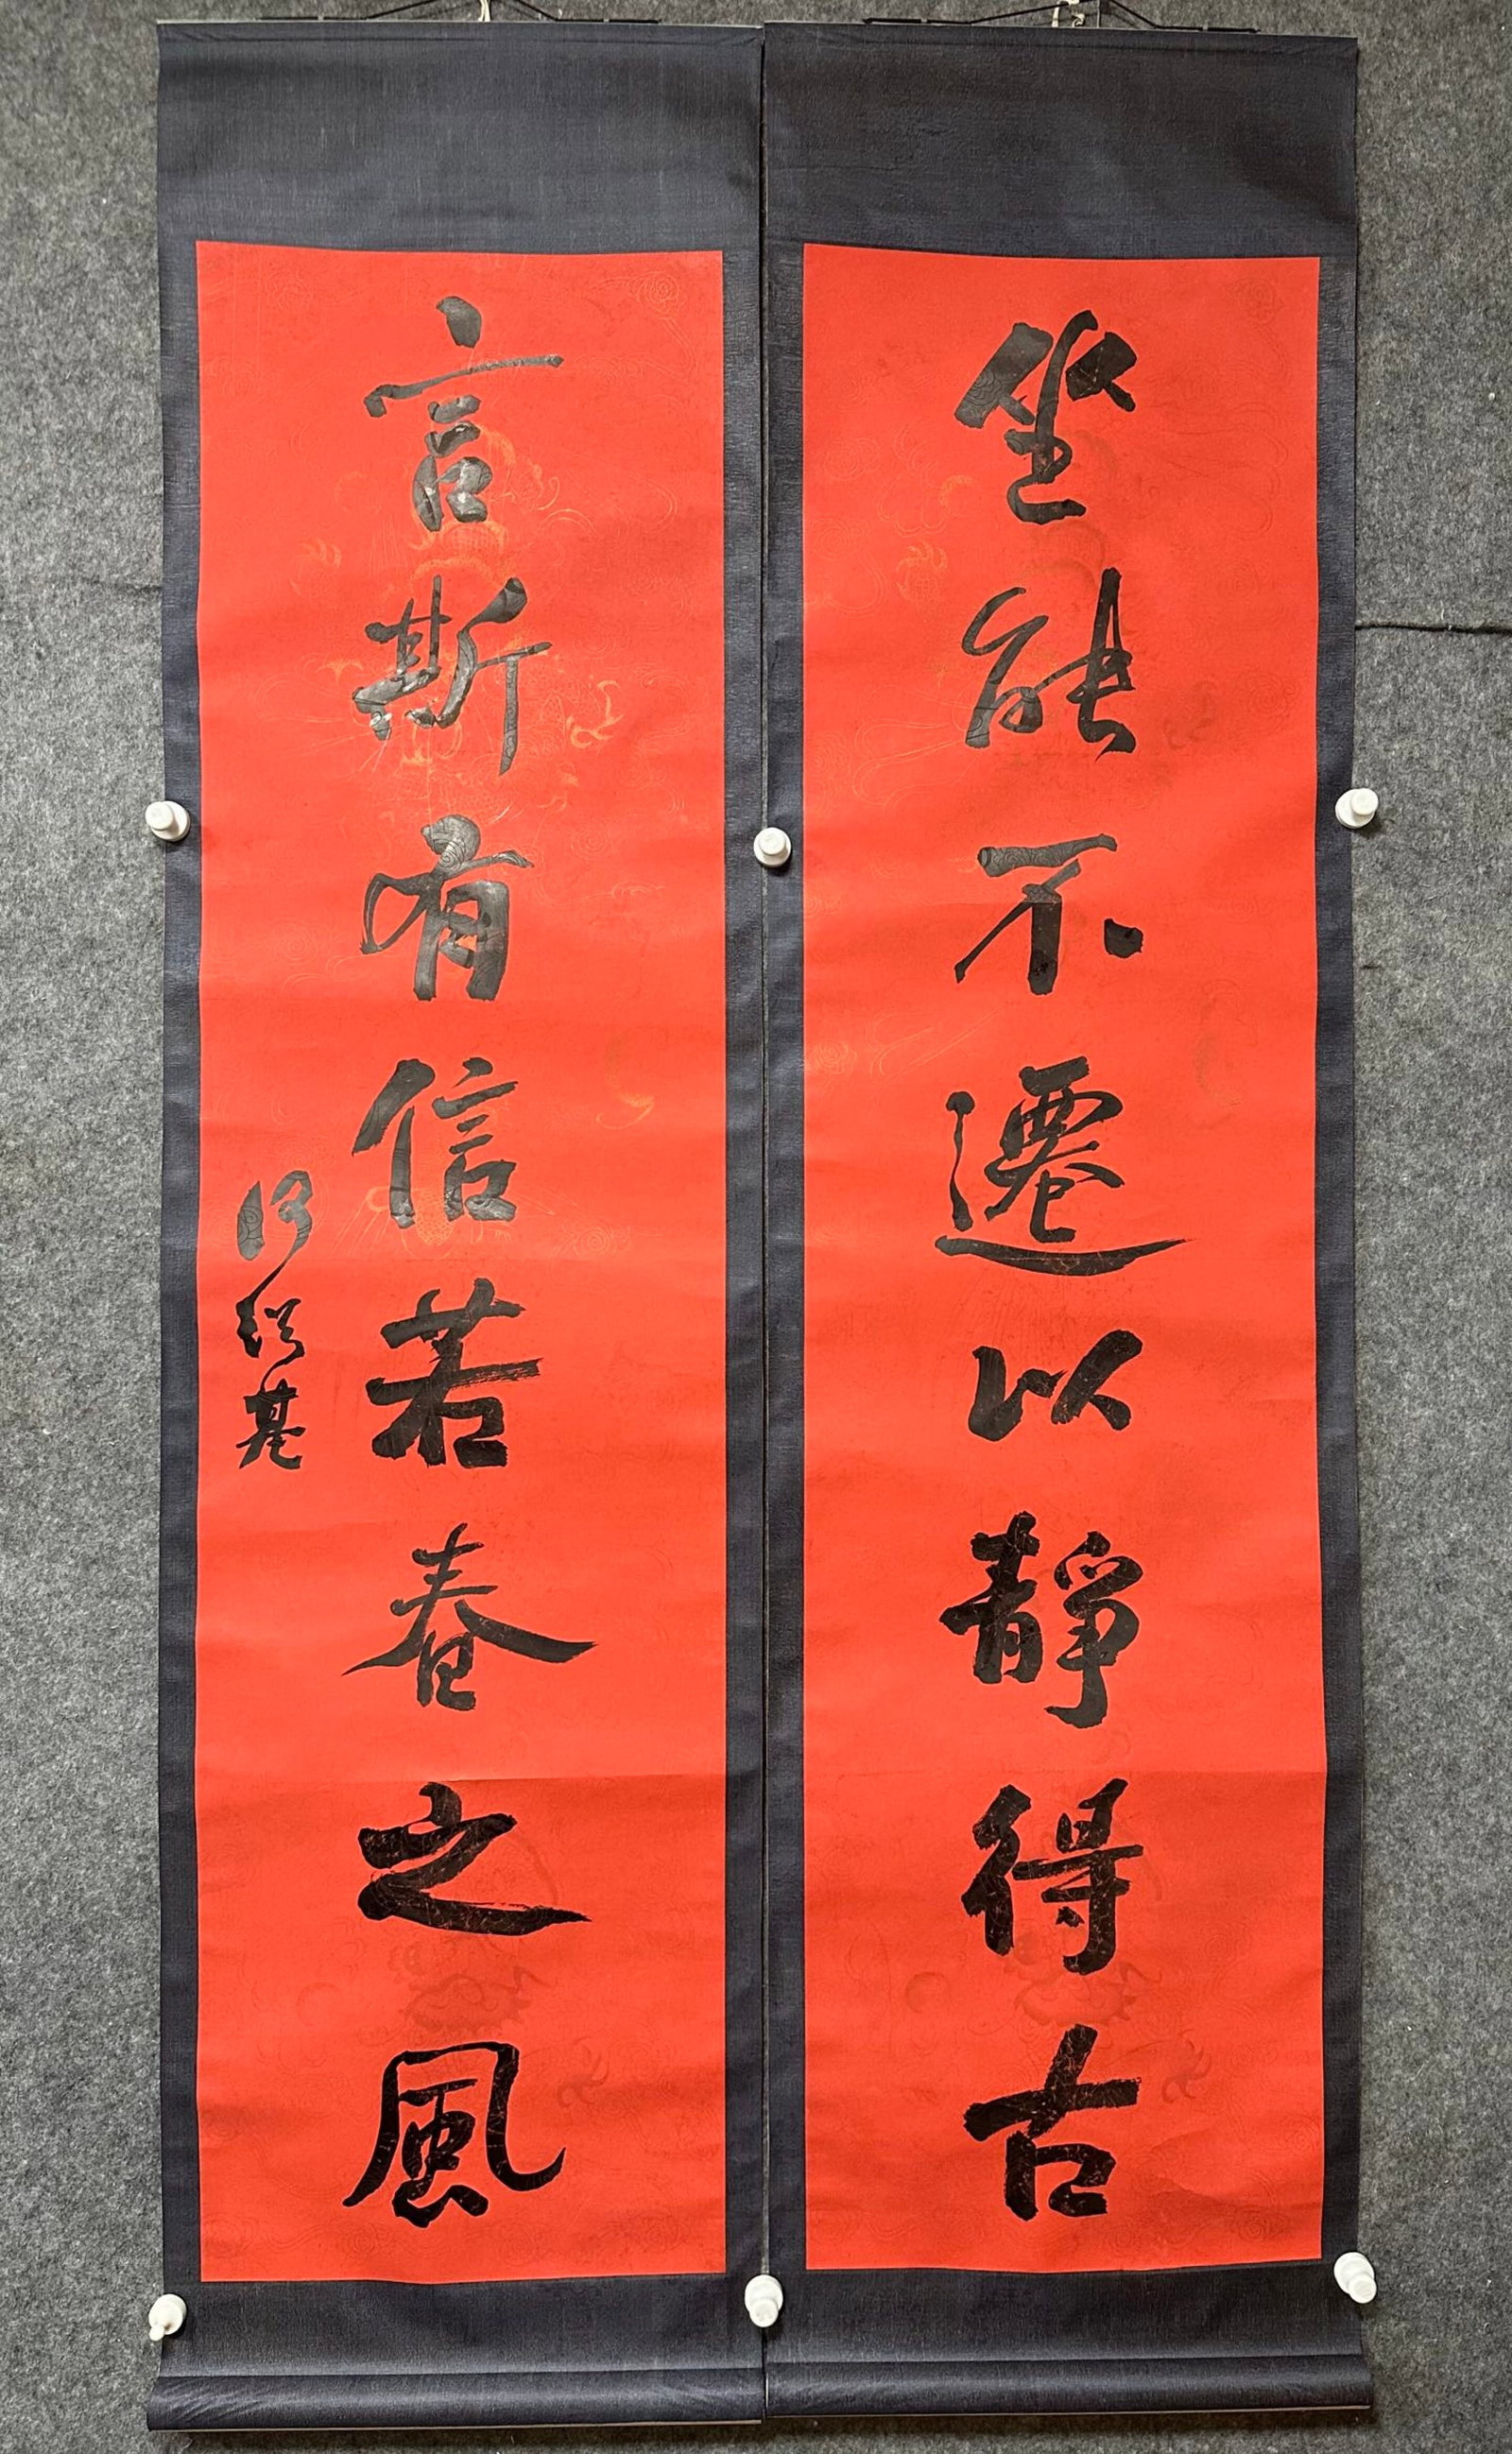 坐能不遷以靜得古
言斯有信若春之風
何紹基